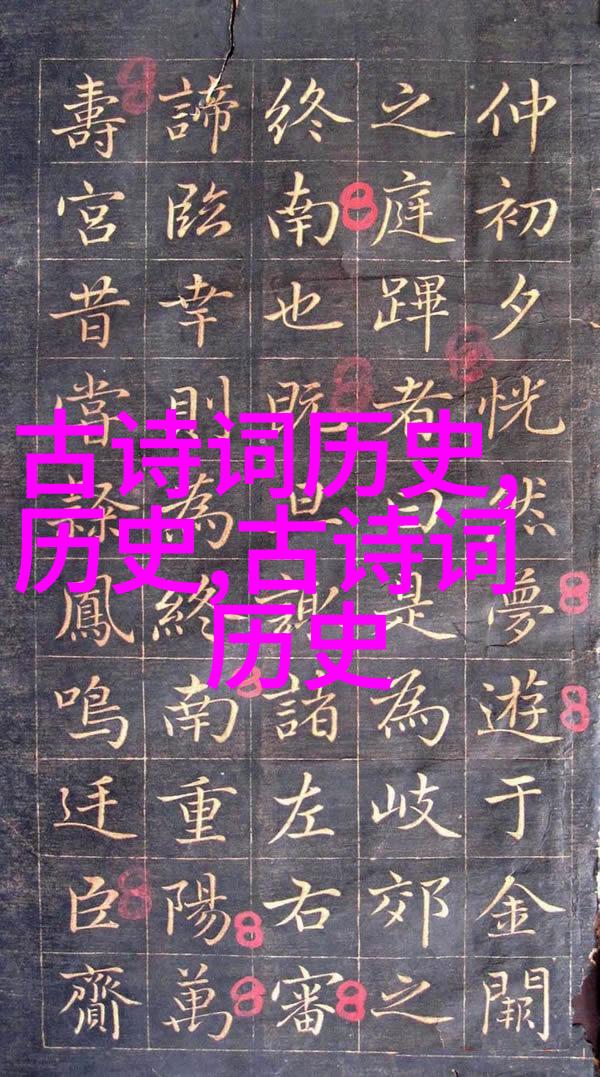 仲初夕恍然夢遊于金闕
之庭蹕者曰是為岐郊之
終南也既諸左右審
諦臨幸則為終南重陽萬
壽宮昔鳳鳴迁臣齎
古诗词历史,
历史,古诗词
历史